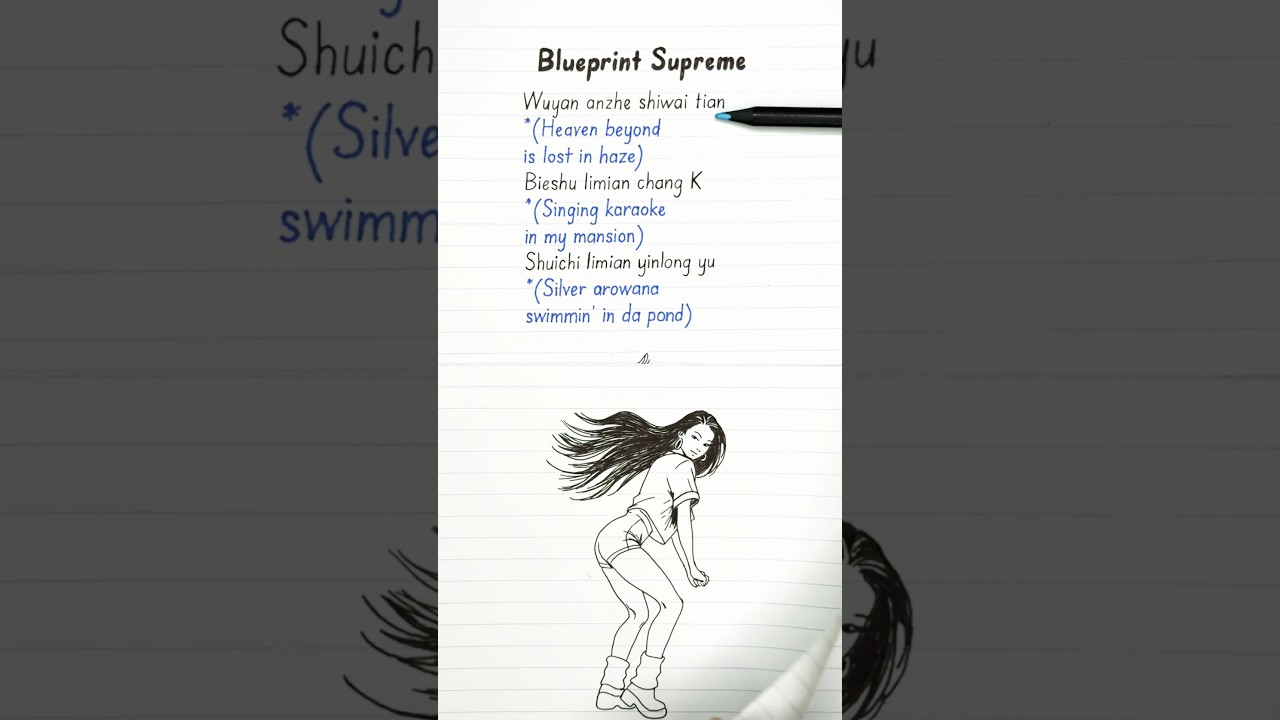 Blueprint Supreme
Wuyan anzhe shiwai tian
*(Heaven beyond
is lost in haze)
Bieshu limian chang K
*(Singing karaoke
in my mansion)
Shuichi limian yinlong yu
*(Silver arowana
swimmin' in da pond)